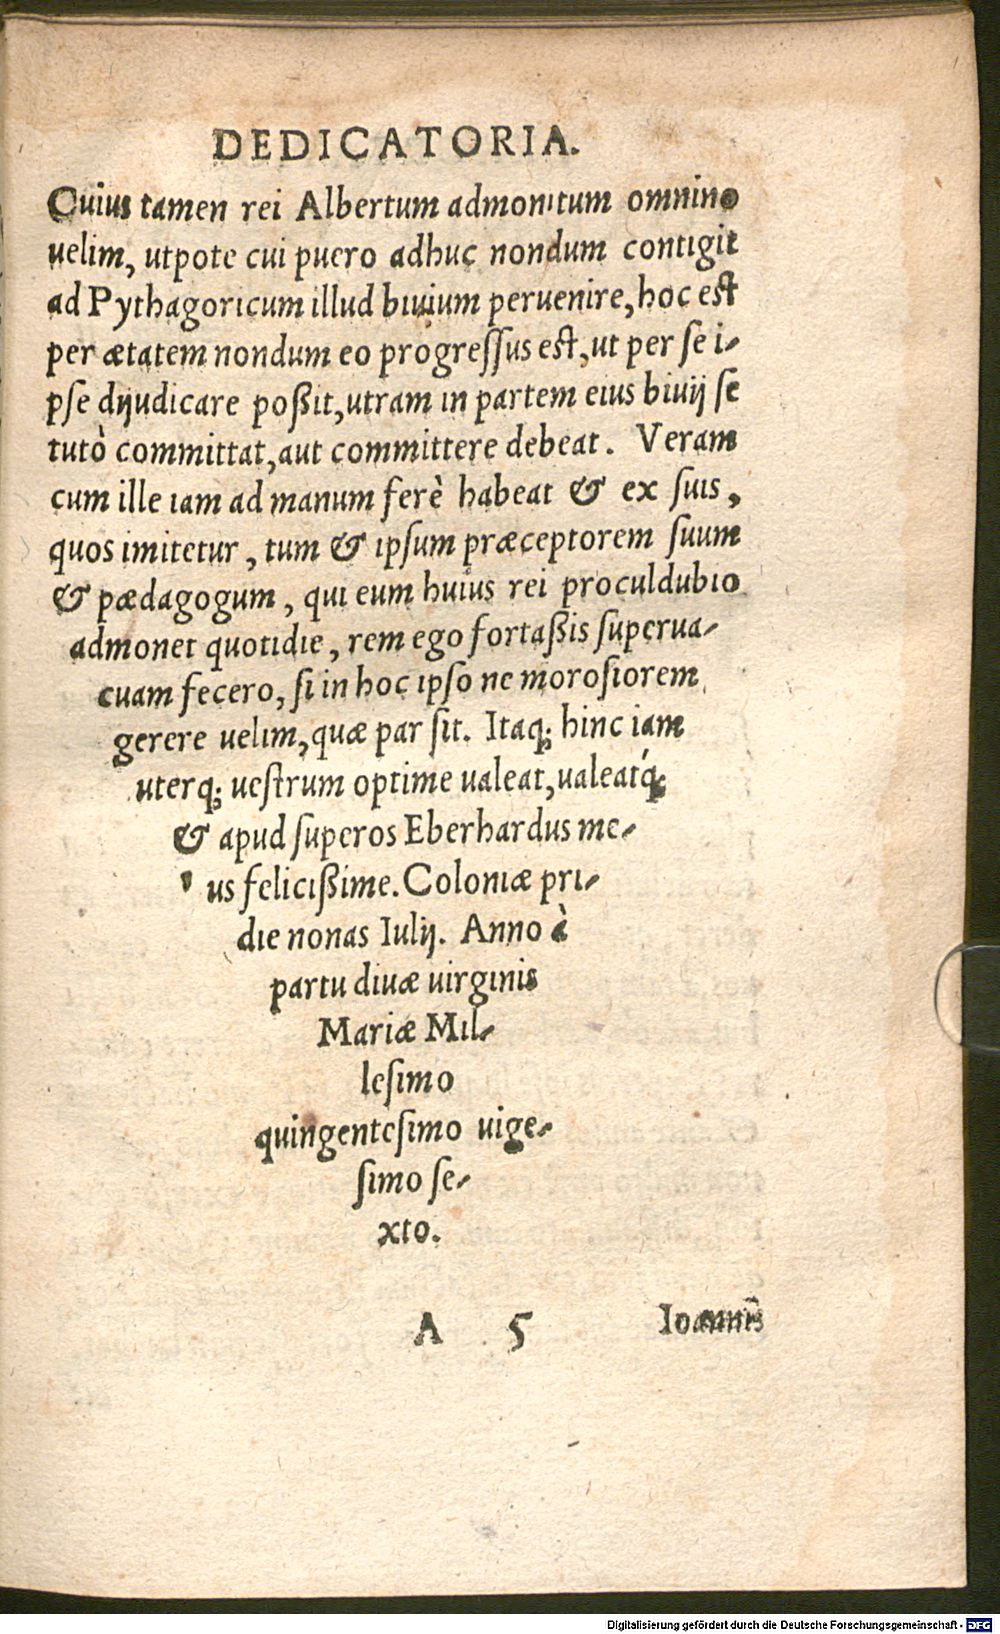 DEDICATORIA.
Cuius tamen rei Albertum admonitum omnino
uelim, utpote cui puero adhuc nondum contigit
ad Pythagoricum illud biuium peruenire, hoc est
per ætatem nondum eo progreſſus est, ut per ſe i-
pſe dijudicare poßit, utram in partem eius biuij ſe
tutò committat, aut committere debeat. Veram
cum ille iam ad manum ferè habeat & ex ſuis,
quos imitetur, tum & ipſum præceptorem ſuum
& pædagogum, qui eum huius rei proculdubio
admonet quotidie, rem ego fortaßis ſuperua-
cuam fecero, ſi in hoc ipſo ne moroſiorem
gerere uelim, quæ par ſit. Itaq; hinc iam
uterq; ueſtrum optime ualeat, ualeatq́;
& apud ſuperos Eberhardus me-
us felicißime. Coloniæ pri-
die nonas Iulij. Anno à
partu diuæ uirginis
Mariæ Mil-
leſimo
quingenteſimo uige-
ſimo ſe-
xto.
A 5 Ioannis
Digitalisierung gefördert durch die Deutsche Forschungsgemeinschaft - DFG